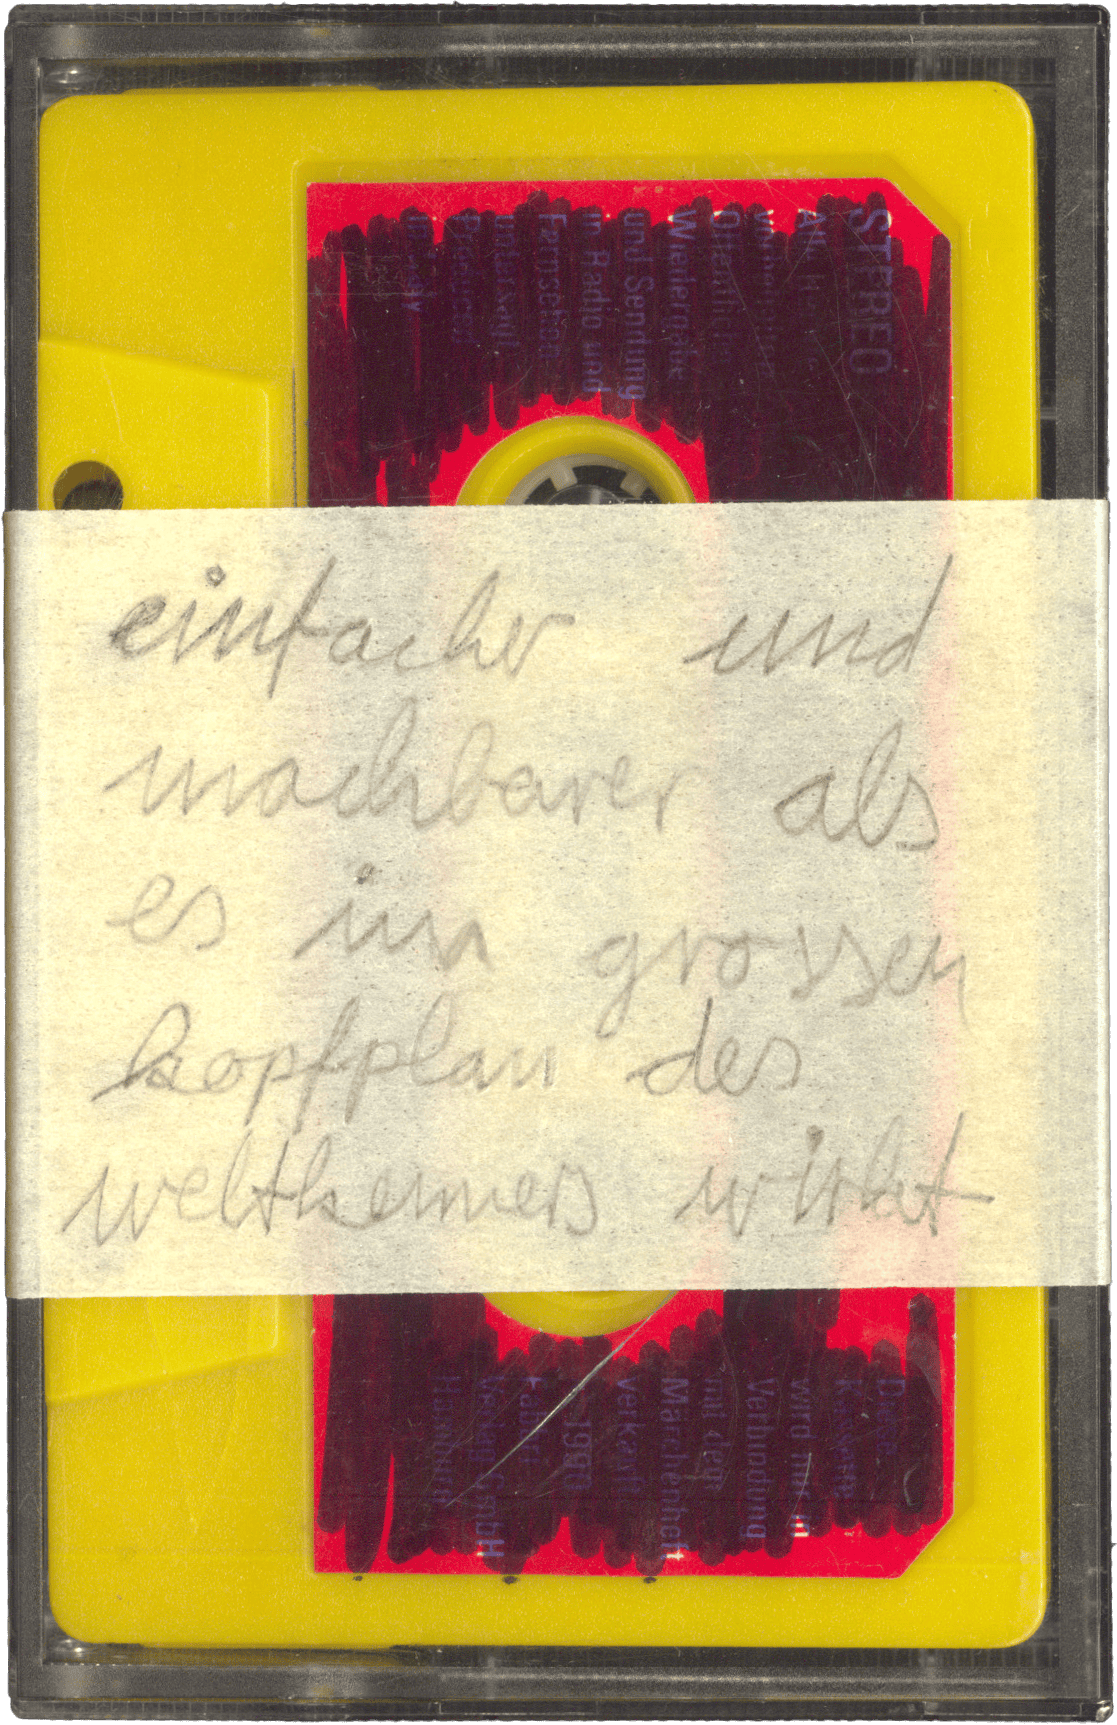 STEREO
Alle
Öffentliche
Wiedergabe
und Sendung
in Radio und
Fernsehen
untersagt
einfacher und
machbarer als
es im grossen
kopfplan des
weltkenners wirkt
Diese
Kassette
wird nur in
Verbindung
mit dem
Märchenheft
verkauft
Fabbri
Verlag GmbH
Hamburg